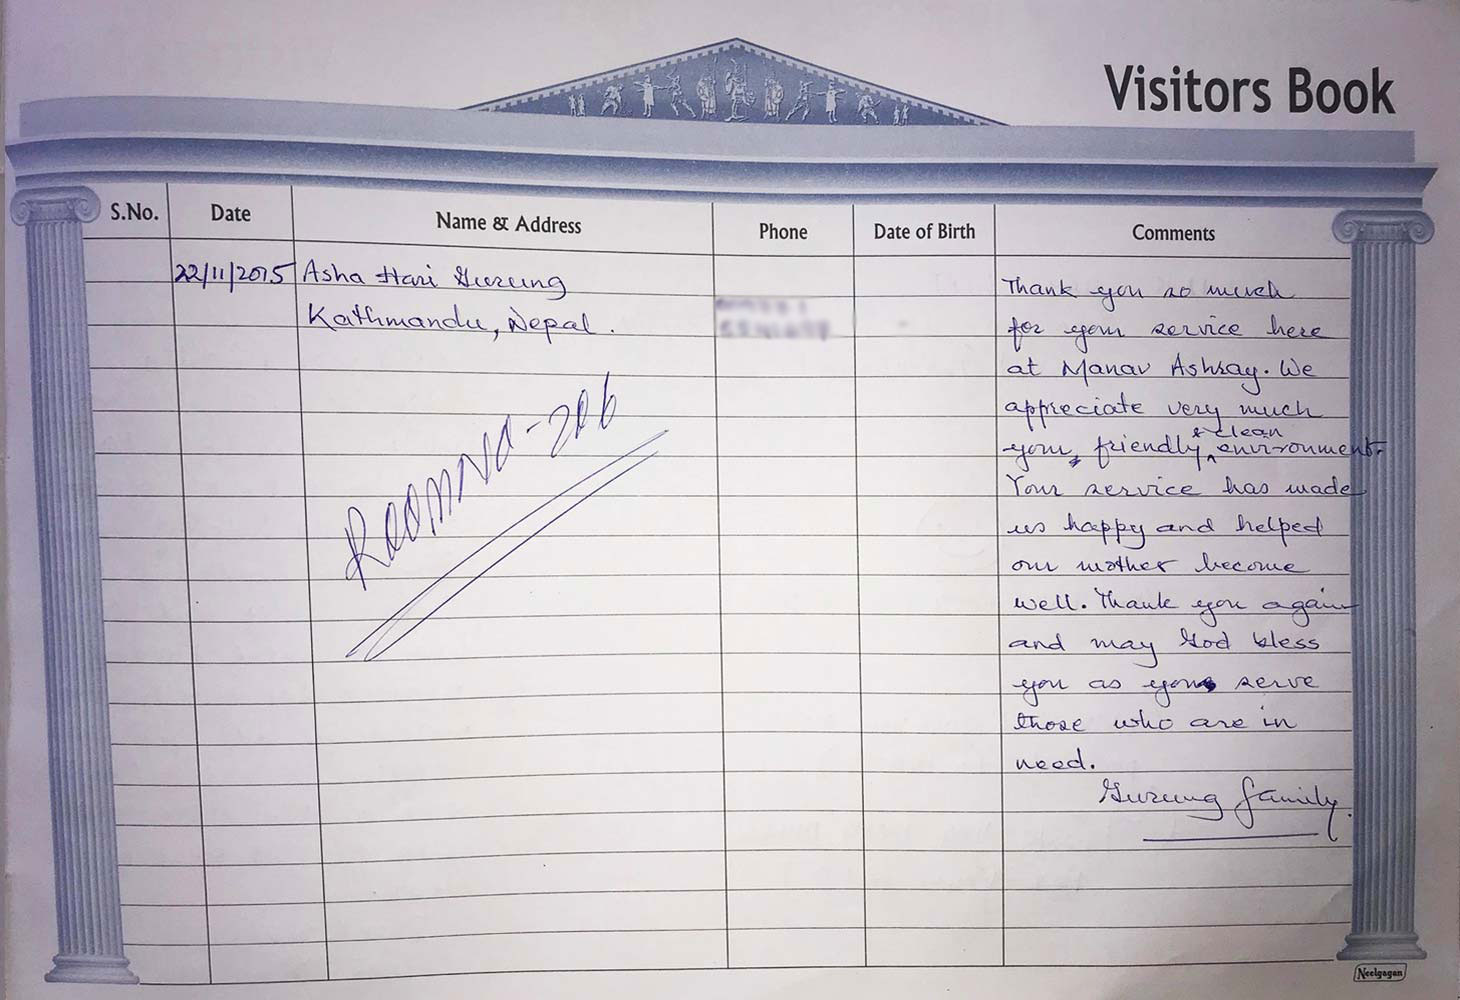 Visitors Book
S.No. Date Name & Address Phone Date of Birth Comments
22/11/2015 Asha Hari Gurung
Kathmandu, Nepal.
Room No-206
Thank you so much
for your service here
at Manav Ashray. We
appreciate very much
your, friendly & clean environment.
Your service has made
us happy and helped
our mother become
well. Thank you again
and may God bless
you as you serve
those who are in
need.
Gurung family.
Neelgagan